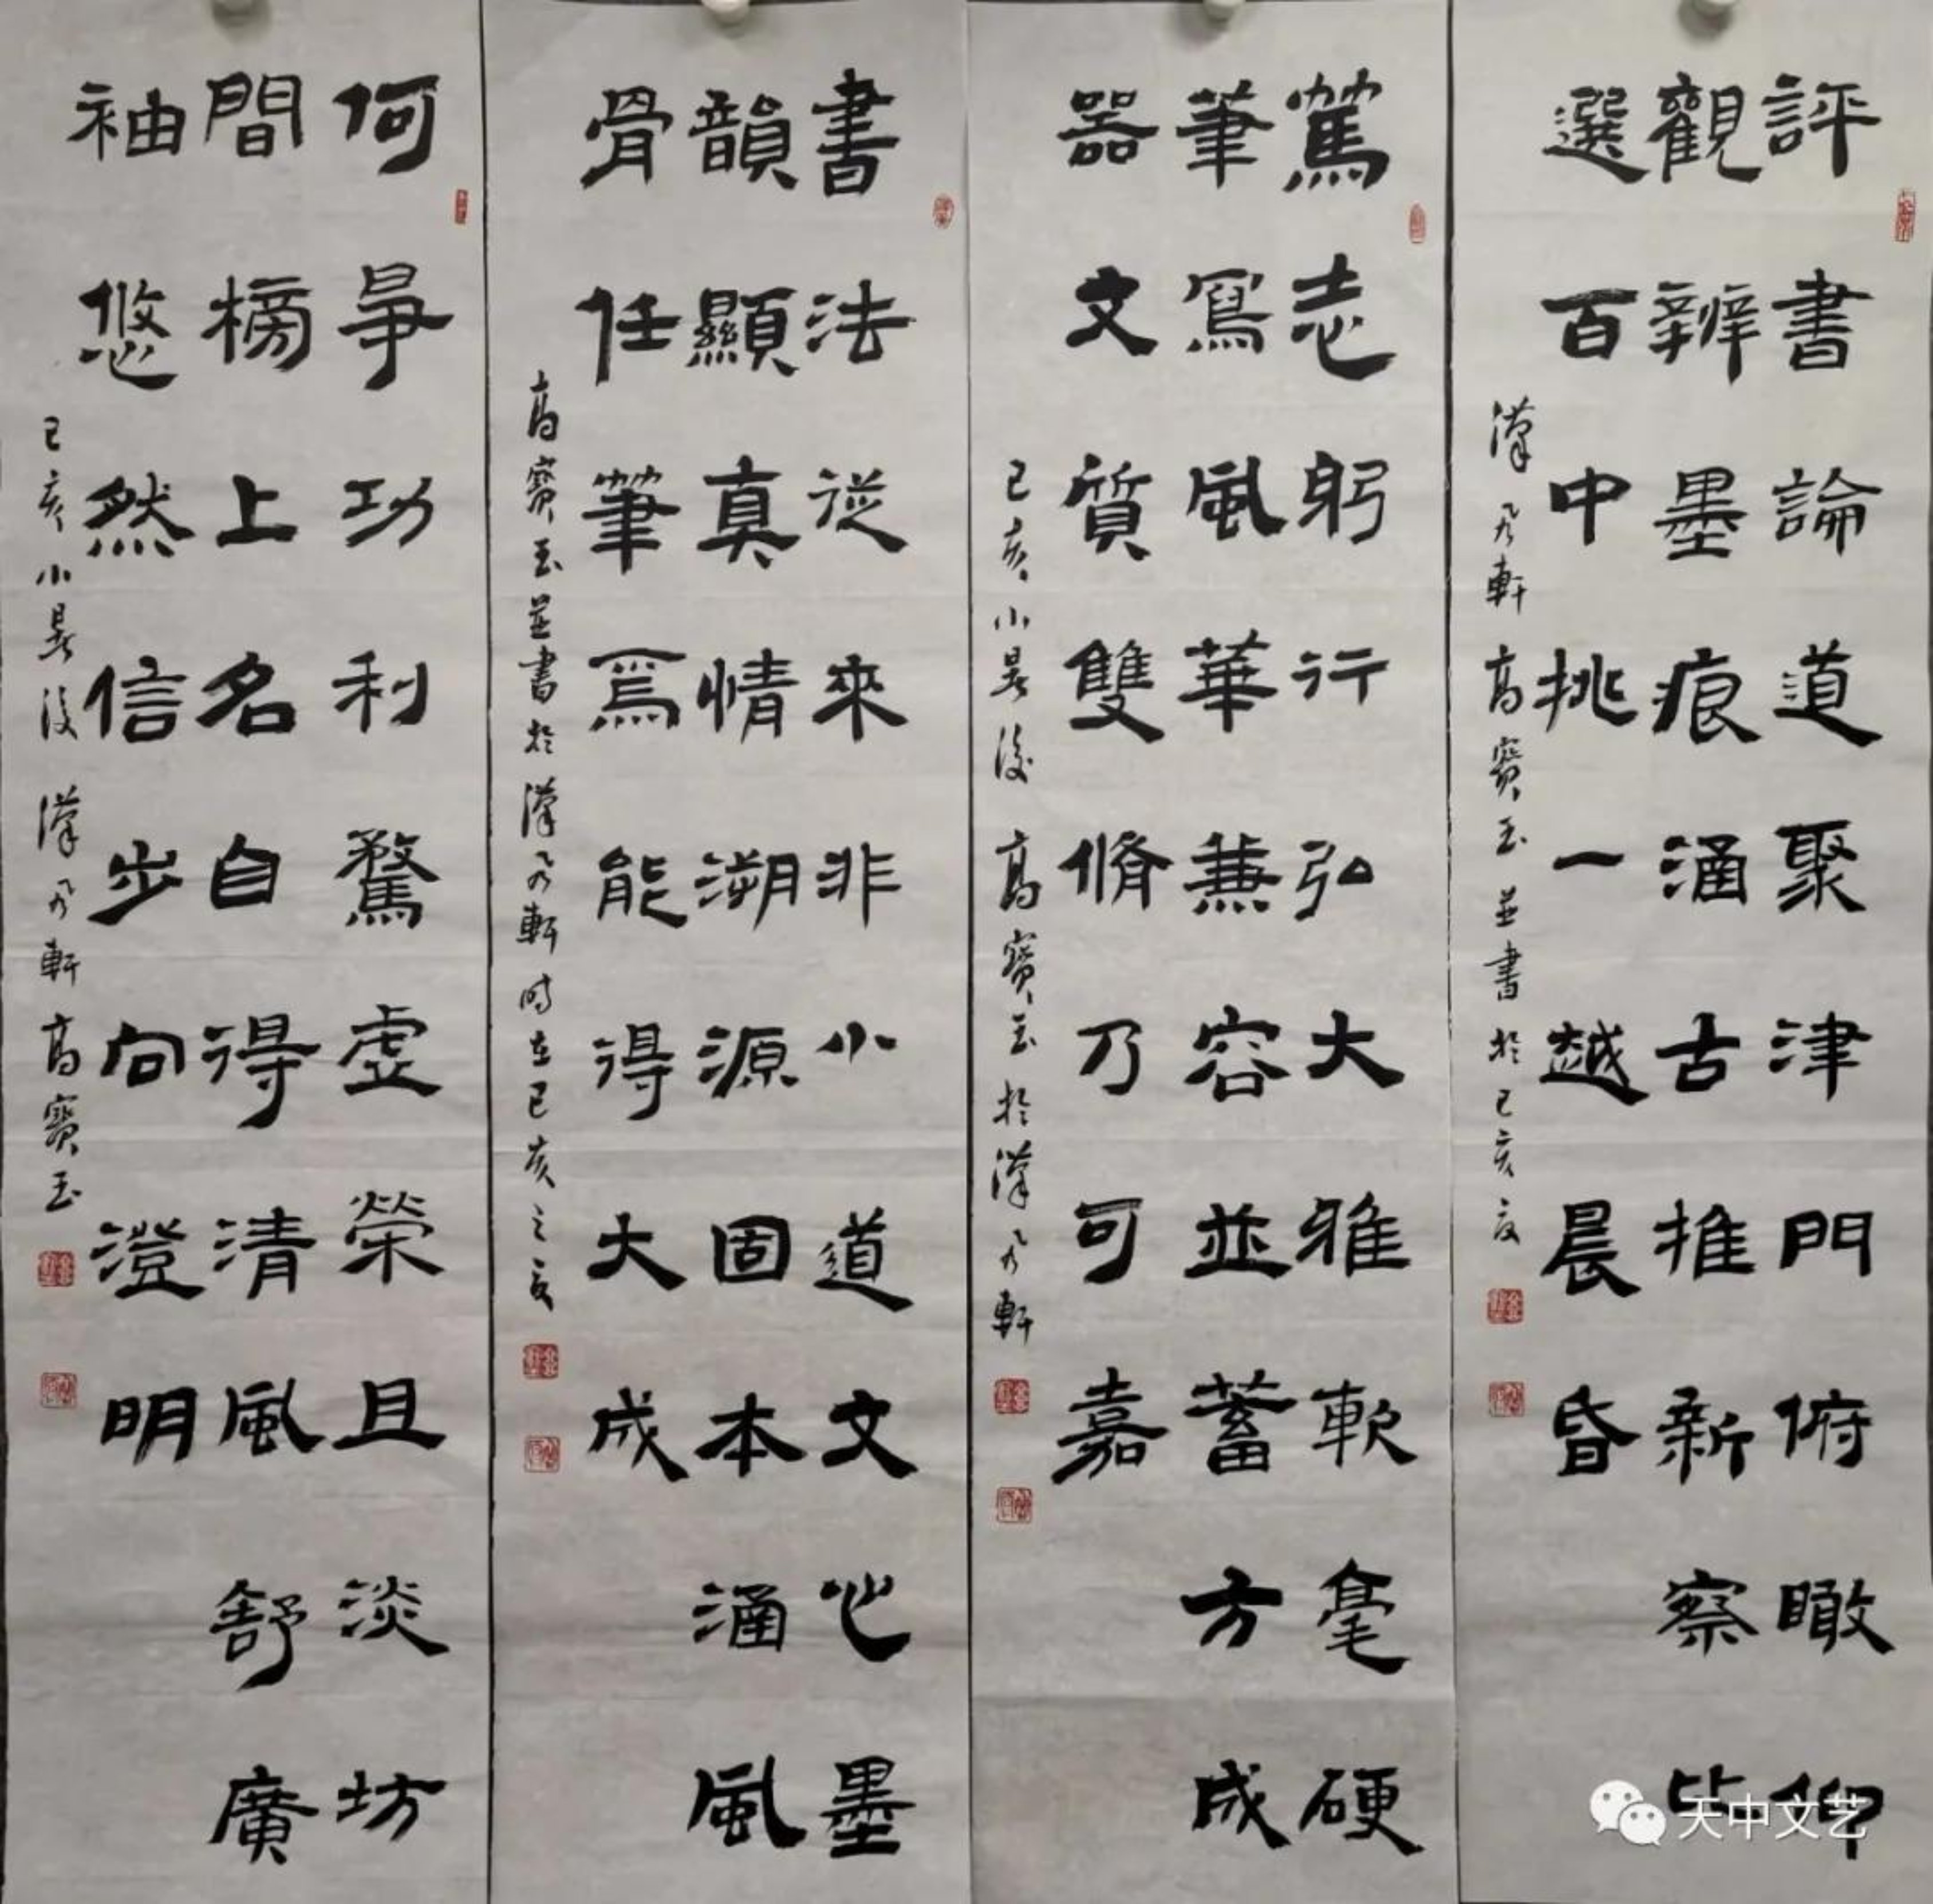 評書論道聚津門俯瞰仰
觀辨墨痕涵古推新察
選百中挑一越晨昏
漢軒高寶玉並書於己亥夏
篤志躬行弘大雅軟毫硬
筆寫風華兼容並蓄方成
器文質雙脩乃可嘉
己亥小暑後高寶玉於漢軒
書法從來非小道文心墨
韻顯真情溯源固本涵風
骨任筆爲能得大成
高寶玉並書於漢軒時在己亥之夏
何爭功利騖虛榮且淡坊
間榜上名自得清風舒廣
袖悠然信步向澄明
己亥小暑後漢軒高寶玉
天中文艺